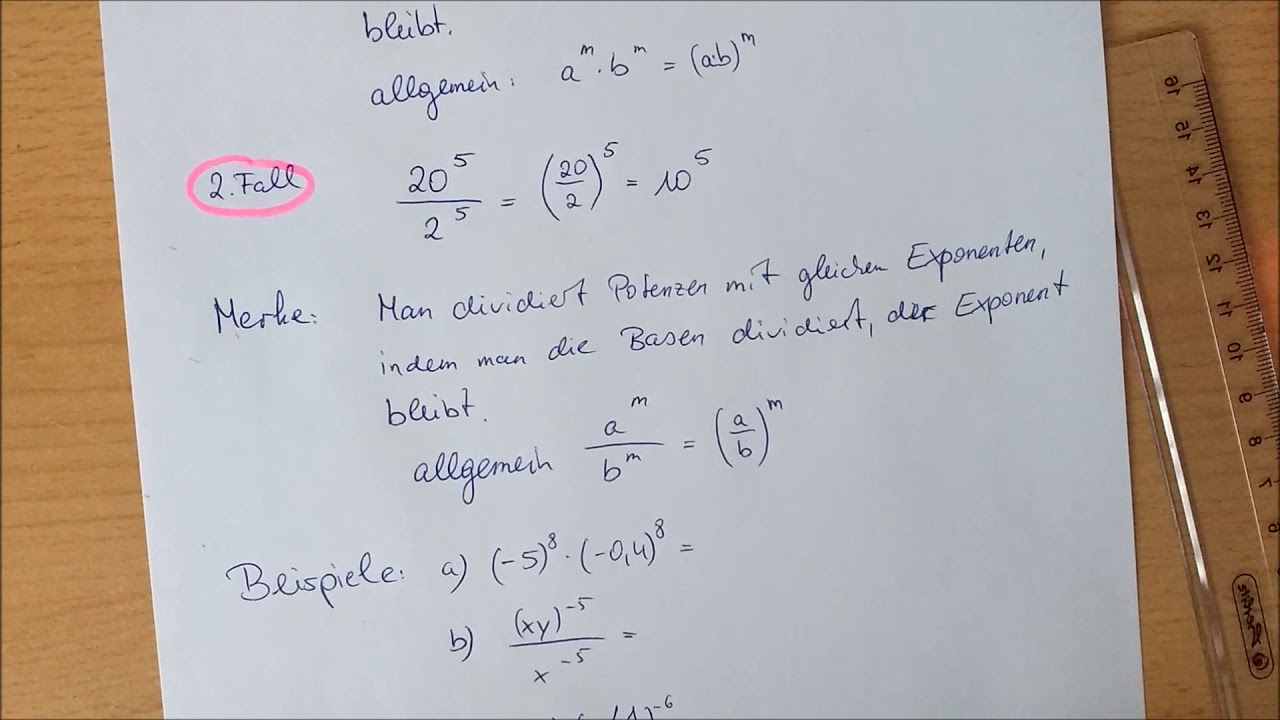 bleibt.
allgemein: a^m · b^m = (a·b)^m
2. Fall 20^5/2^5 = (20/2)^5 = 10^5
Merke: Man dividiert Potenzen mit gleichen Exponenten,
indem man die Basen dividiert, der Exponent
bleibt.
allgemein a^m/b^m = (a/b)^m
Beispiele: a) (-5)^8 · (-0,4)^8 =
b) (xy)^-5/x^-5 =
16 15 14 13 12 11 10 9 8 7